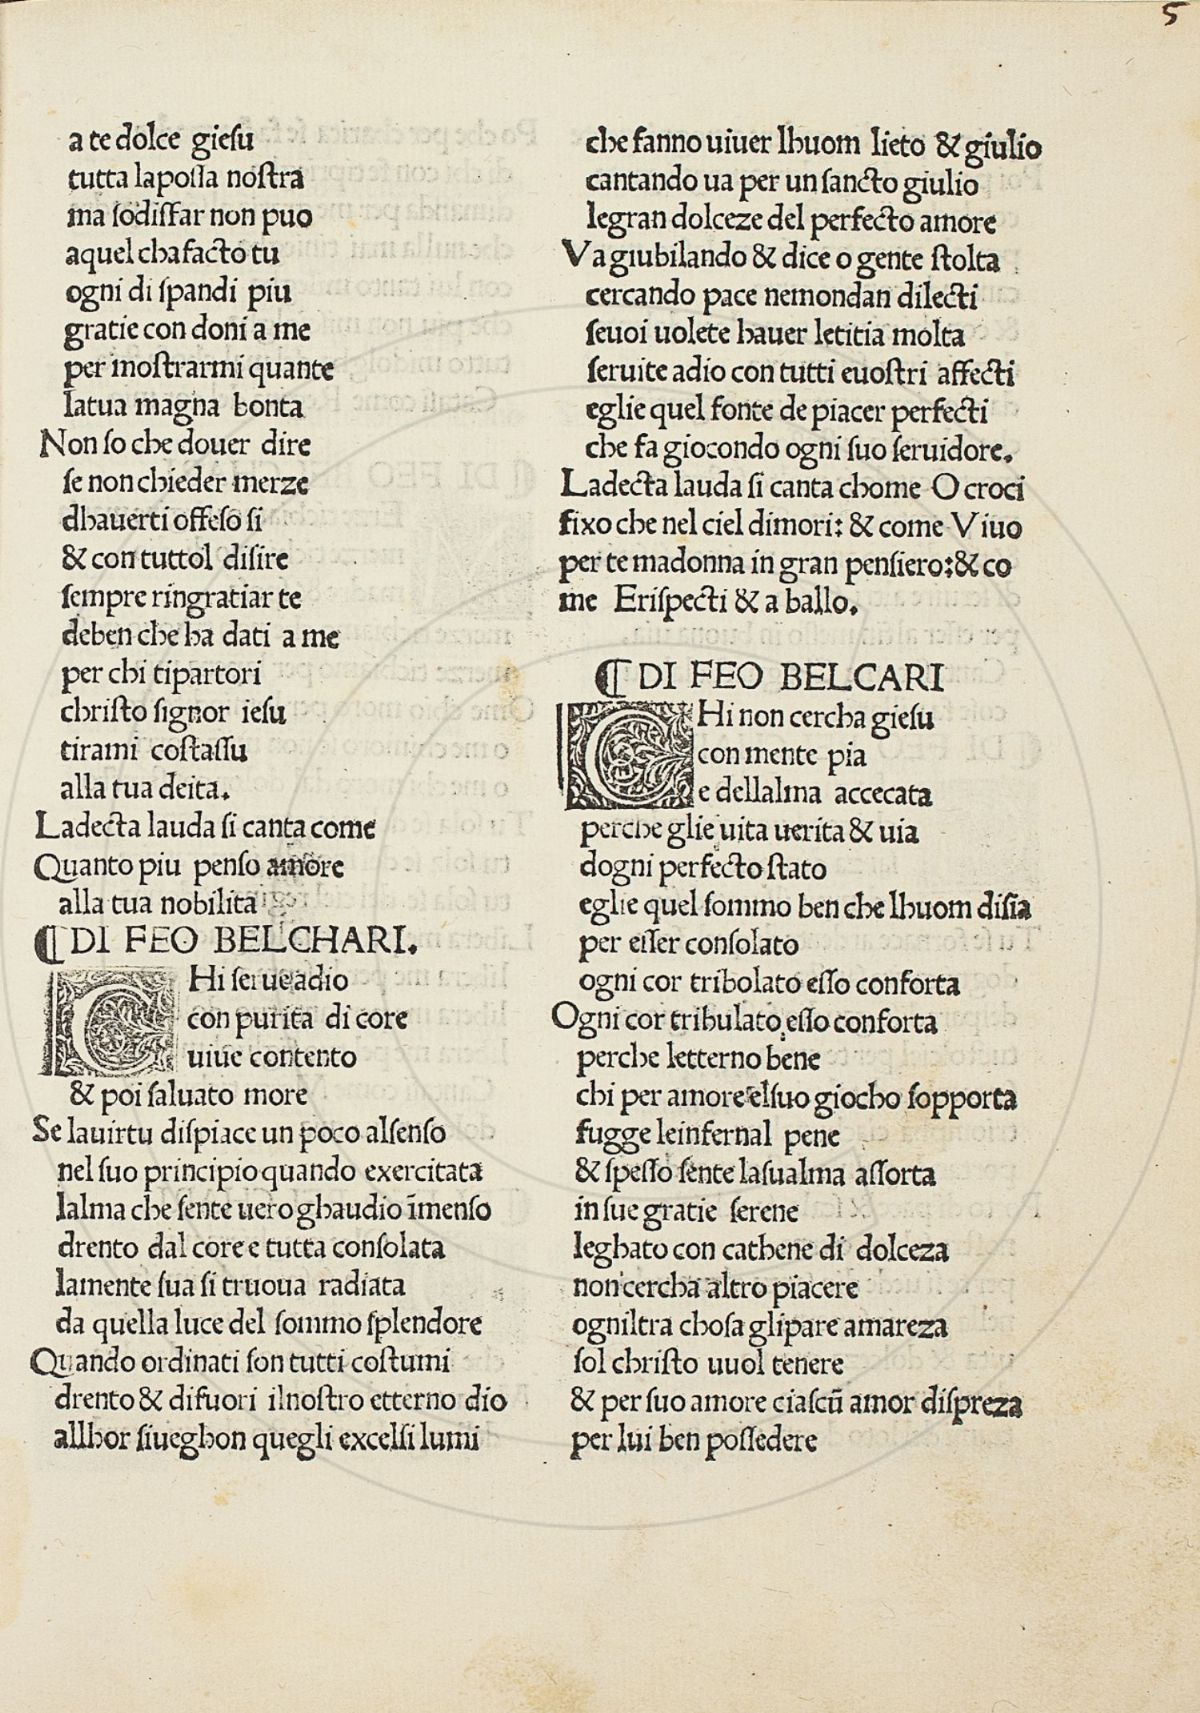 5
a te dolce gieſu
tutta lapoſſa noſtra
ma ſodiſfar non puo
aquel chafacto tu
ogni di ſpandi piu
gratie con doni a me
per moſtrarmi quante
latua magna bonta
Non ſo che douer dire
ſe non chieder merze
dhauerti offeſo ſi
& con tuttol diſire
ſempre ringratiar te
deben che ha dati a me
per chi tipartori
chriſto ſignor ieſu
tirami coſtaſſu
alla tua deita.
Ladecta lauda ſi canta come
Quanto piu penſo amore
alla tua nobilita
¶ DI FEO BELCHARI.
CHi ſerue adio
con purita di core
uiue contento
& poi ſaluato more
Se lauirtu diſpiace un poco alſenſo
nel ſuo principio quando exercitata
lalma che ſente uero ghaudio īmenſo
drento dal core e tutta conſolata
lamente ſua ſi truoua radiata
da quella luce del ſommo ſplendore
Quando ordinati ſon tutti coſtumi
drento & difuori ilnoſtro etterno dio
allhor ſiueghon quegli excelſi lumi
che fanno uiuer lhuom lieto & giulio
cantando ua per un ſancto giulio
legran dolceze del perfecto amore
Va giubilando & dice o gente ſtolta
cercando pace nemondan dilecti
ſeuoi uolete hauer letitia molta
ſeruite adio con tutti euoſtri affecti
eglie quel fonte de piacer perfecti
che fa giocondo ogni ſuo ſeruidore.
Ladecta lauda ſi canta chome O croci
fixo che nel ciel dimori: & come Viuo
per te madonna in gran penſiero:& co
me Eriſpecti & a ballo.
¶ DI FEO BELCARI
CHi non cercha gieſu
con mente pia
e dellalma accecata
perche glie uita uerita & uia
dogni perfecto ſtato
eglie quel ſommo ben che lhuom diſia
per eſſer conſolato
ogni cor tribolato eſſo conforta
Ogni cor tribulato eſſo conforta
perche letterno bene
chi per amore elſuo giocho ſopporta
fugge leinfernal pene
& ſpeſſo ſente laſualma aſſorta
in ſue gratie ſerene
leghato con cathene di dolceza
non cercha altro piacere
ogniltra choſa glipare amareza
ſol chriſto uuol tenere
& per ſuo amore ciaſcū amor diſpreza
per lui ben poſſedere